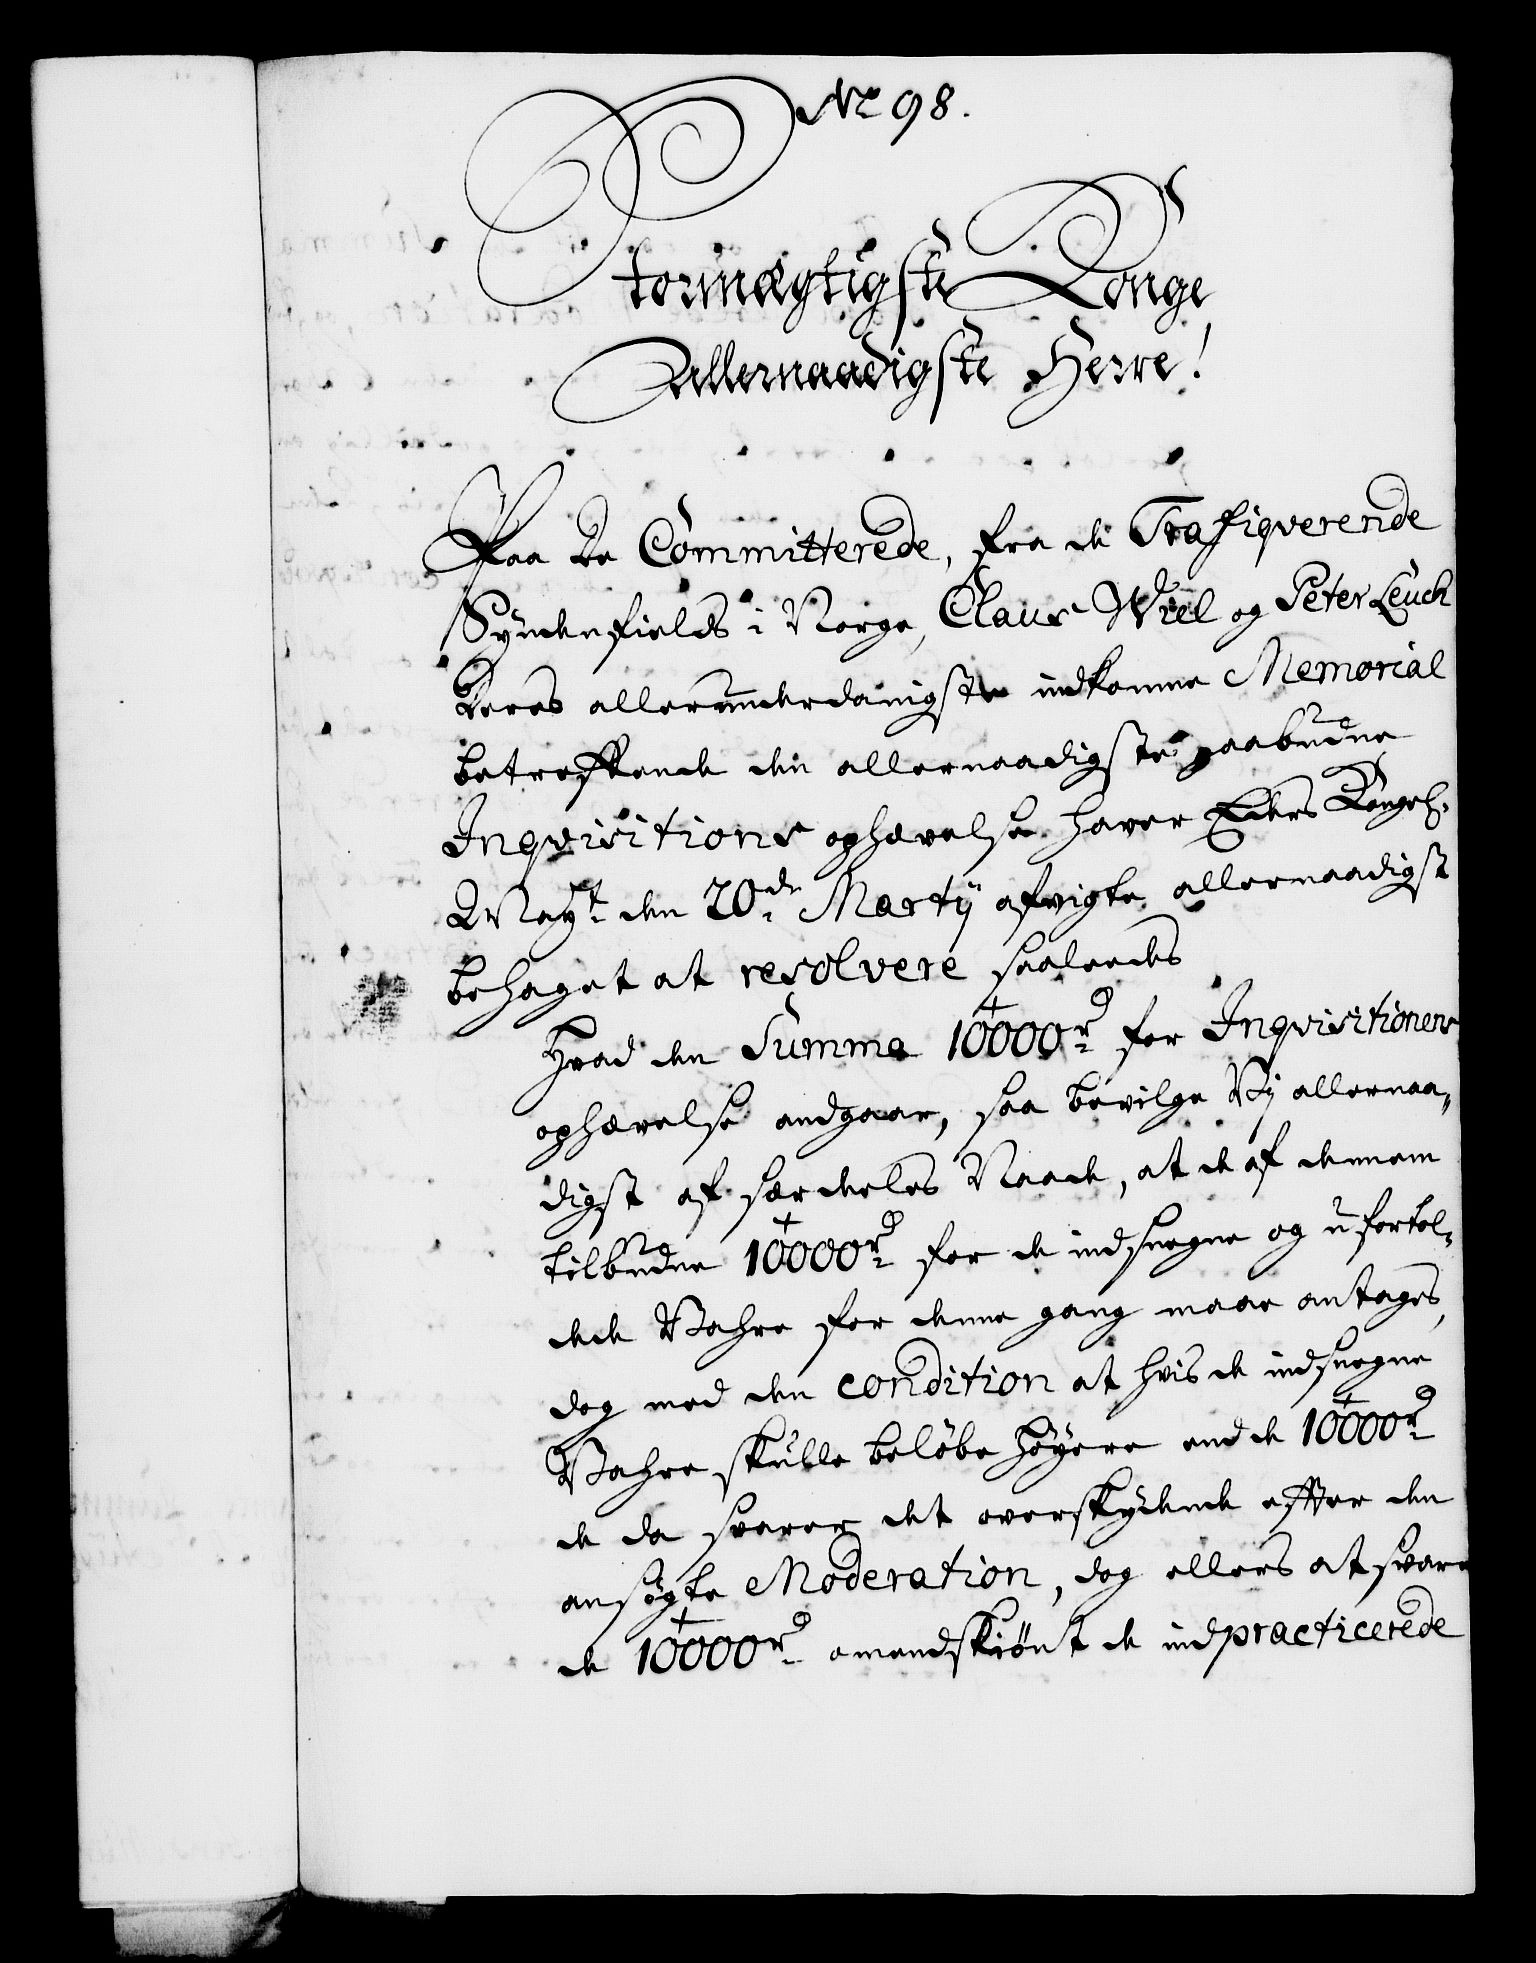 No 98.
Stormægtigste Konge
Allernaadigste Herre!
Paa De Committerede, fra de Trafiqverende
Syndenfields i Norge, Claus Wiel og Peter Leuch
deres allerunderdanigste indkomne Memorial
betreffende den allernaadigste paabudne
Inqvisitions ophævelse haver Eders Kongel:
Mayt: den 20de Martij afvigte allernaadigst
behaget at resolvere saaleedes
Hvad den Summa 10000 rd for Inqvisitionens
ophævelse andgaar, saa bevilge Vy allernaa-
digst af særdeles Naade, at de af dennem
tilbudne 10000 rd for de indsnegne og ufortol-
dede Vahre for denne gang maae antages,
dog med den condition at hvis de indsnegne
Vahre skulle beløbe høyere end de 10000 rd
de da svarer det overskydende effter den
ansøgte Moderation, dog ellers at svare
de 10000 rd omendskiønt de indpracticerede